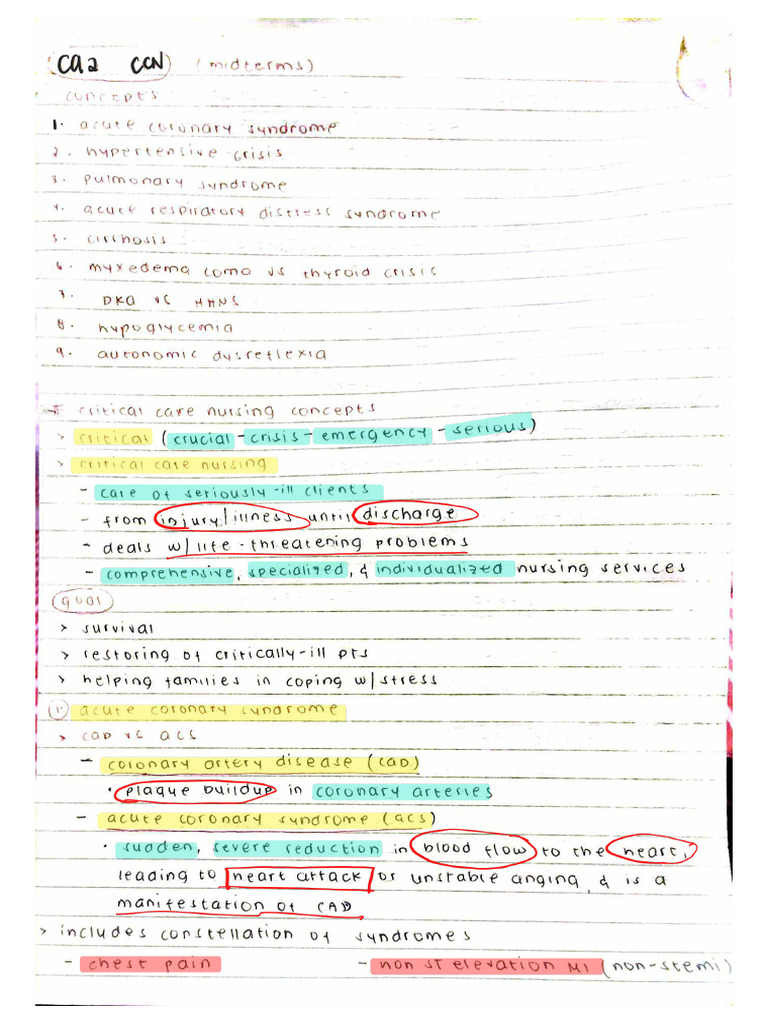 ca2 ccn (midterms)
concepts
1. acute coronary syndrome
2. hypertensive crisis
3. pulmonary syndrome
4. acute respiratory distress syndrome
5. cirrhosis
6. myxedema coma vs thyroid crisis
7. DKA vs HHNS
8. hypoglycemia
9. autonomic dysreflexia
critical care nursing concepts
> critical (crucial - crisis - emergency - serious)
> critical care nursing
- care of seriously-ill clients
- from injury/illness until discharge
- deals w/ life-threatening problems
- comprehensive, specialized, & individualized nursing services
goal
> survival
> restoring of critically-ill pts
> helping families in coping w/ stress
1. acute coronary syndrome
> CAD vs ACS
- coronary artery disease (CAD)
• plaque buildup in coronary arteries
- acute coronary syndrome (ACS)
• sudden, severe reduction in blood flow to the heart,
leading to heart attack or unstable anging, & is a
manifestation of CAD
> includes constellation of syndromes
- chest pain - non ST elevation MI (non-stemi)